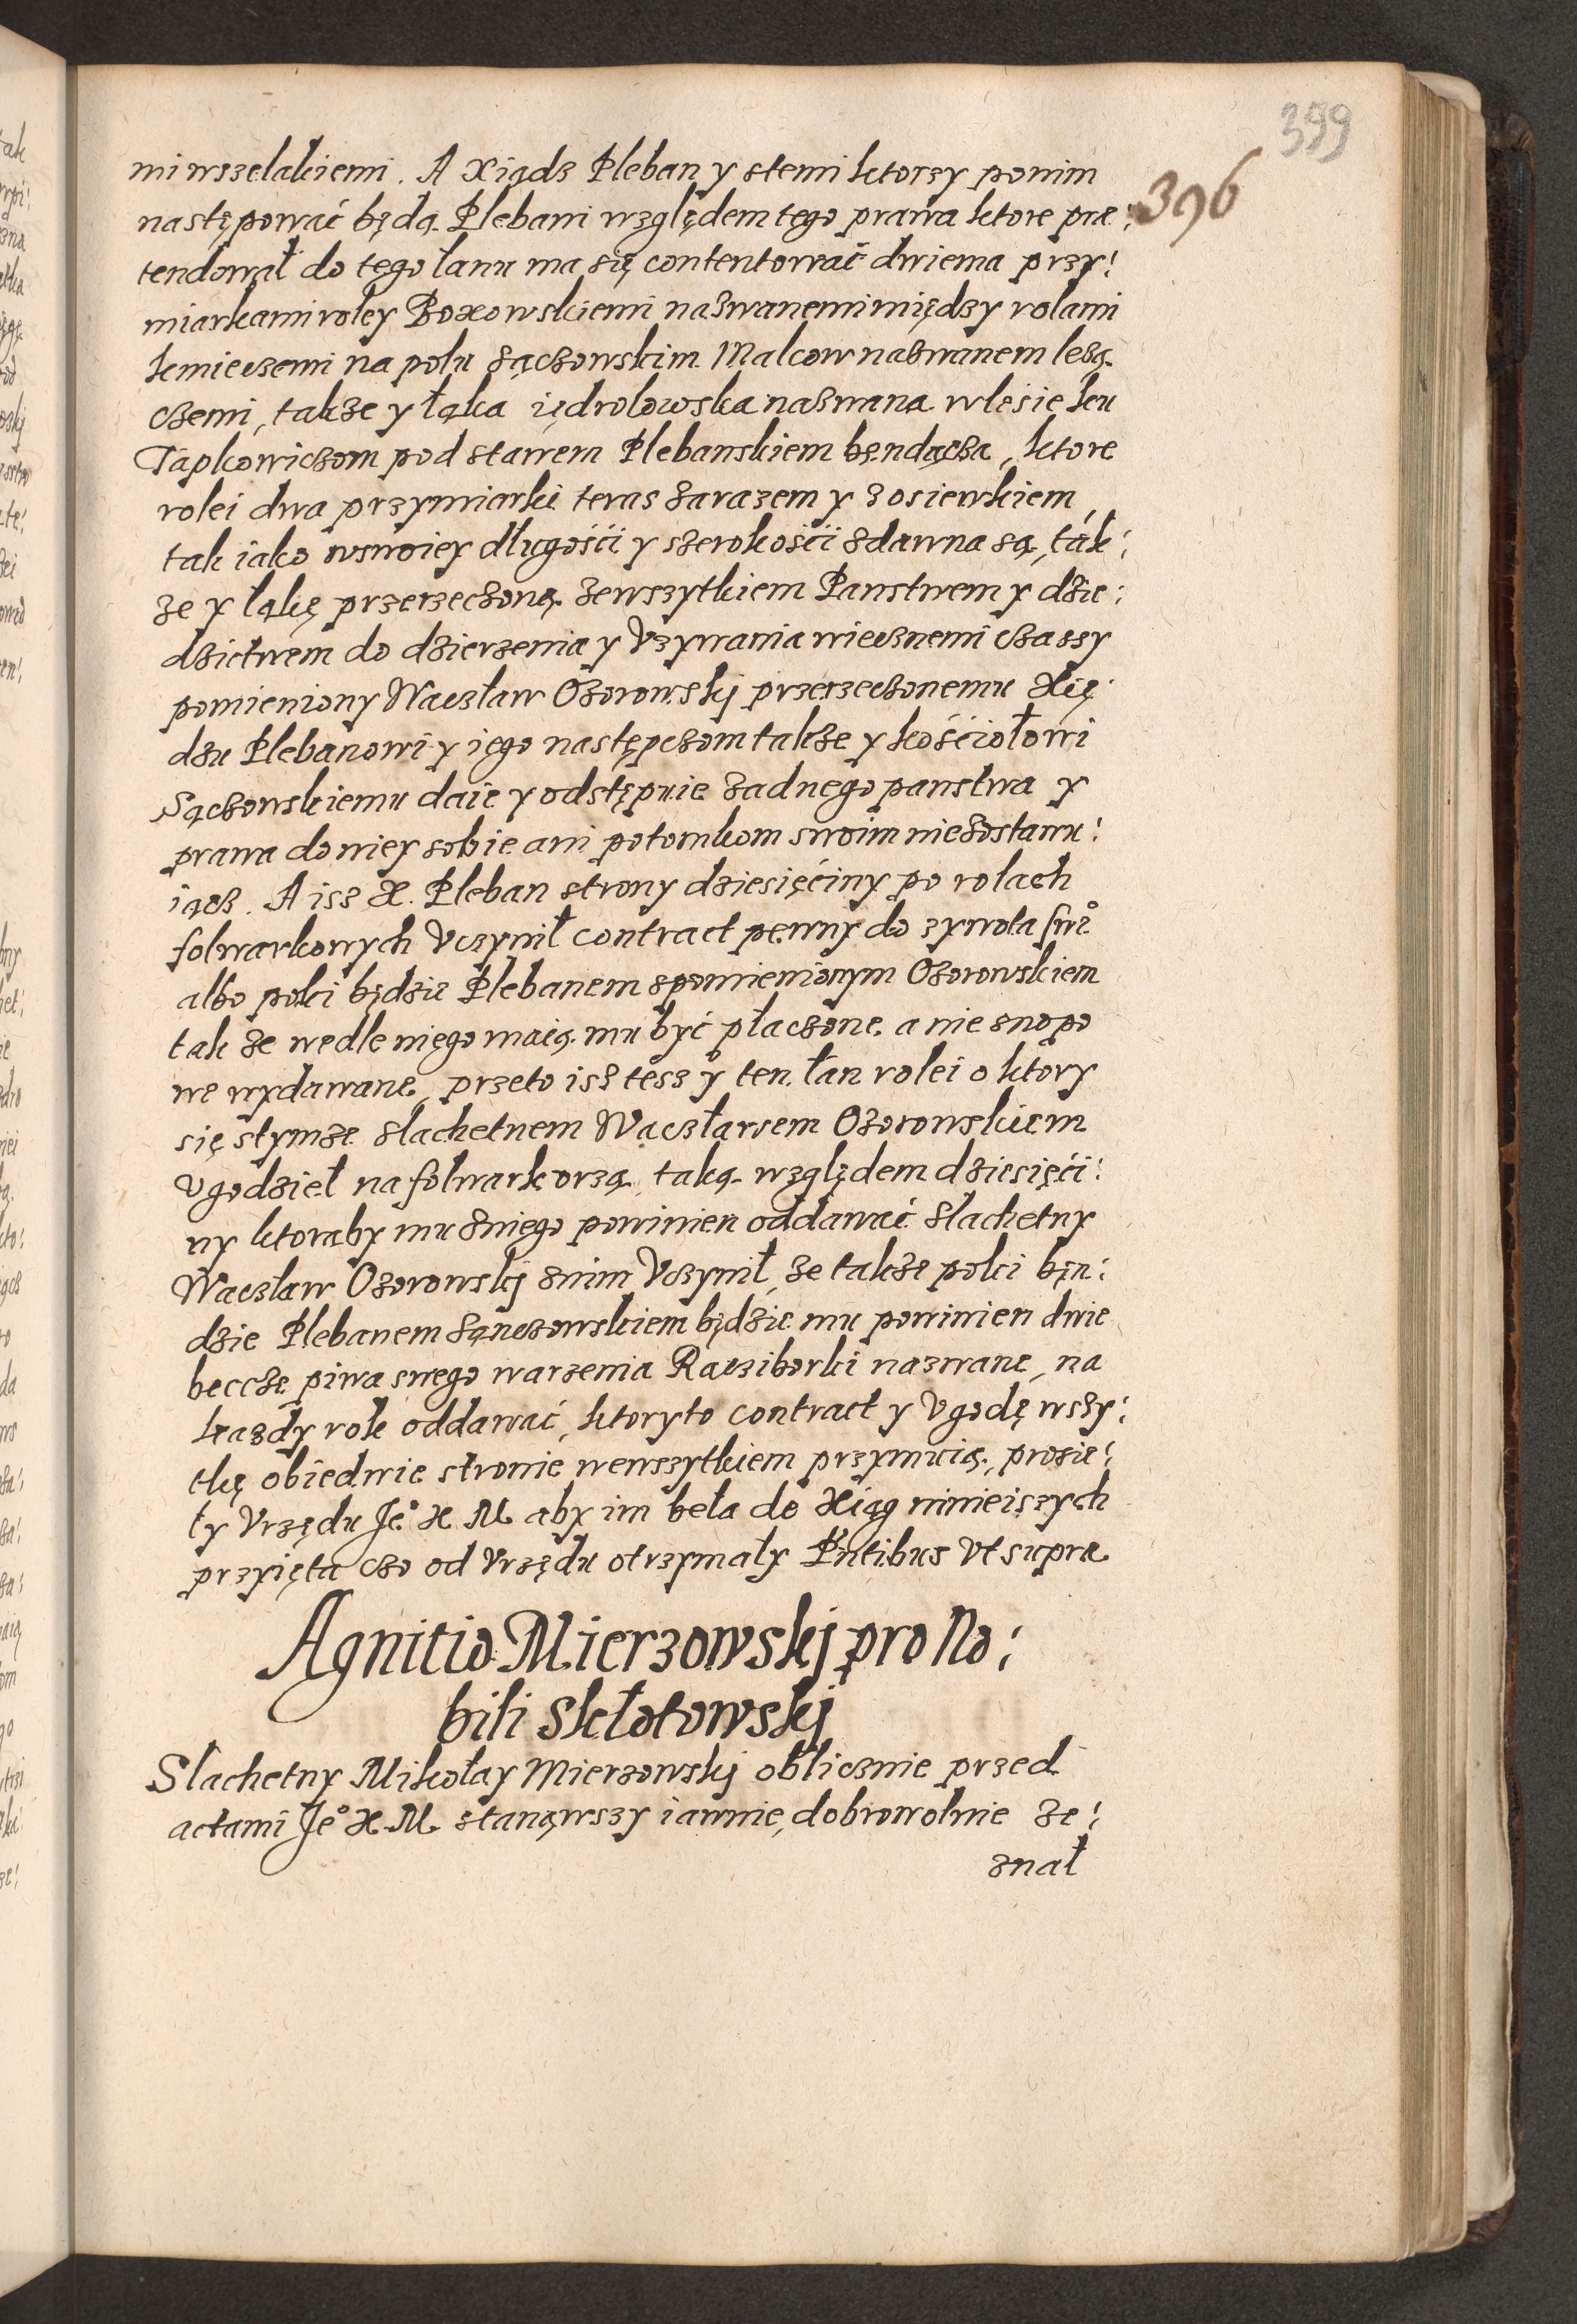 399
396
mi wszelakiemi. A Xiądz Pleban y stemi ktorzy ponim
następować będą Plebani względem tego prawa ktore præ:
tendował do tego łanu ma się contentować dwiema przy:
miarkami roley Boxowskiemi nazwanemi między rolami
kmieczemi na polu Sączowskim Malcow nazwanem lezą
czemi, takze y łąka iędrolowska nazwana wlesie ku
Tąpkowiczom pod stawem Plebanskiem będącza, ktore
rolei dwa przymiarki teras zarazem y z osiewkiem,
tak iako wswoiey długości y szerokości zdawna są, ták:
ze y łąkę przerzeczoną zewszytkiem Panstwem y dzie:
dzictwem do dzierzenia y Vzywania wiecznemi czassy
pomieniony Waczław Ozorowskj przerzeczonemu Xię
dzu Plebanowi y iego następczom takze y kościołowi
Sączowskiemu daie y odstępuie zadnego panstwa y
prawa do niey sobie ani potomkom swoim niezostawu:
iącz. A isz X. Pleban strony dziesięciny po rolach
folwarkowych Vczynił contract pewny do zywota swº
albo poki będzie Plebanem zpomienionym Ozorowskiem
tak ze wedle niego maią mu być płaczone a nie snopo
we wydawane, przeto isz tesz y ten łan rolei o ktory
się stymze slachetnem Wączławem Ozorowskiem
vgodzieł na folwark orzą, taką względem dziesięci:
ny ktoraby mu zniego powinien oddawać slachetny
Wacław Ozorowskj znim Vczynił, ze takze poki bęn:
dzie Plebanem Sąnczowskiem będzie mu powinien dwie
beccze piwa swego warzenia Racziborki nazwane, na
kazdy rok oddawać, ktoryto contract y Vgodę wszy:
tkę obiedwie stronie wewszytkiem przymuią, prosie:
ły Vrzędu Jeº X M aby im beła do Xiąg ninieiszych
przyięta czo od Vrzędu otrzymały Pntibus Vt supra
Agnitio Mierzowskj pro No:
bili Skłotowskj
Slachetny Mikołay Mierzowskj oblicznie przed
actami Jeº X. M. stanąwszy iawnie, dobrowolnie ze:
znał